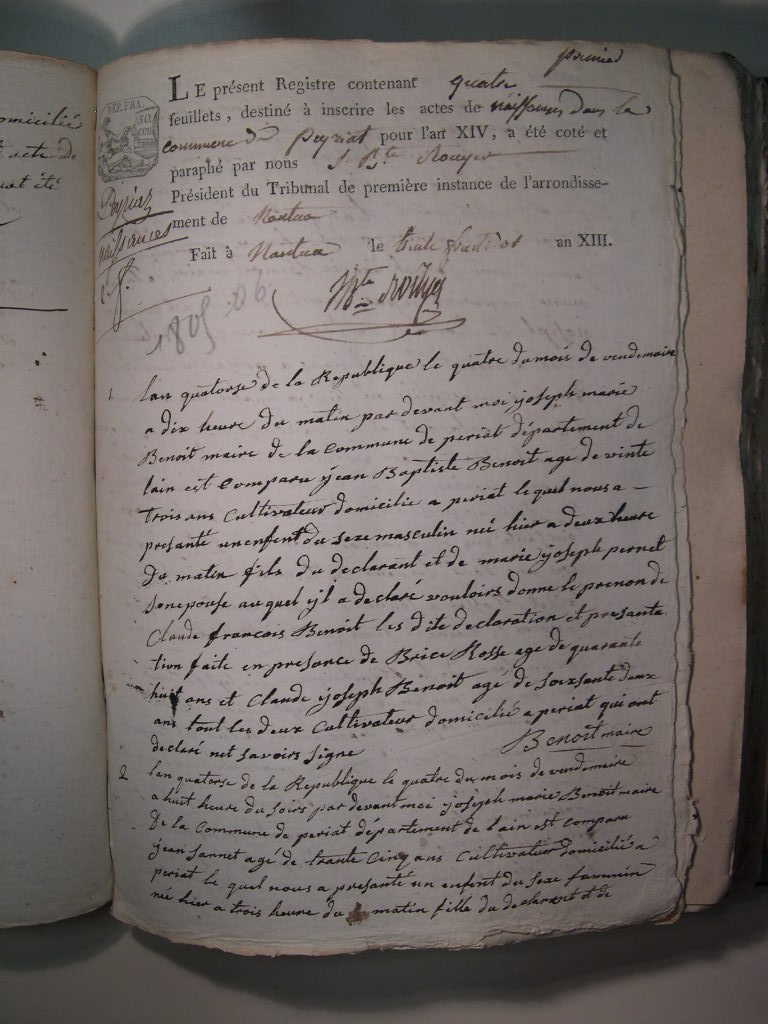 omicilié
acte de
premier
REP. FRA.
50.
cen
LE présent Registre contenant quatre
feuillets, destiné à inscrire les actes de naissances dans la
commune de Peyriat pour l'an XIV, a été coté et
paraphé par nous J. Bte Rouyer
Président du Tribunal de première instance de l'arrondisse-
ment de Nantua
Fait à Nantua le trente fructidor an XIII.
Peyriat
naissances
1805 . 06
1 lan quatorse de la Republique le quatre du mois de vendemaire
a dix heure du matin par devant moi joseph marie
Benoit maire de la commune de periat département de
lain est comparu jean Baptiste Benoit age de vinte
trois ans Cultivateur domicilie a periat le quel nous a —
presanté un enfent du sexe masculin né hier a deux heure
du matin fils du declarant et de marie joseph pernet
son epouse au quel yl a declaré vouloirs donne le prenon de
Claude francois Benoit les dite declaration et presanta
tion faite en presance de Brice Rosse age de quarante
huit ans et Claude joseph Benoit agé de soixsante deux
ans tout les deux Cultivateur domicilié a periat qui ont
declaré net savoirs signe
Benoit maire
2 lan quatorse de la Republique le quatre du mois de vendemaire
a huit heure du soirs par devant moi joseph marie Benoit maire
de la commune de periat département de lain est comparu
jean Jannet agé de trante cinq ans Cultivateur domicilié a
periat le quel nous a presanté un enfent du sexe faminin
née hier a trois heure du matin fille du declarent et de